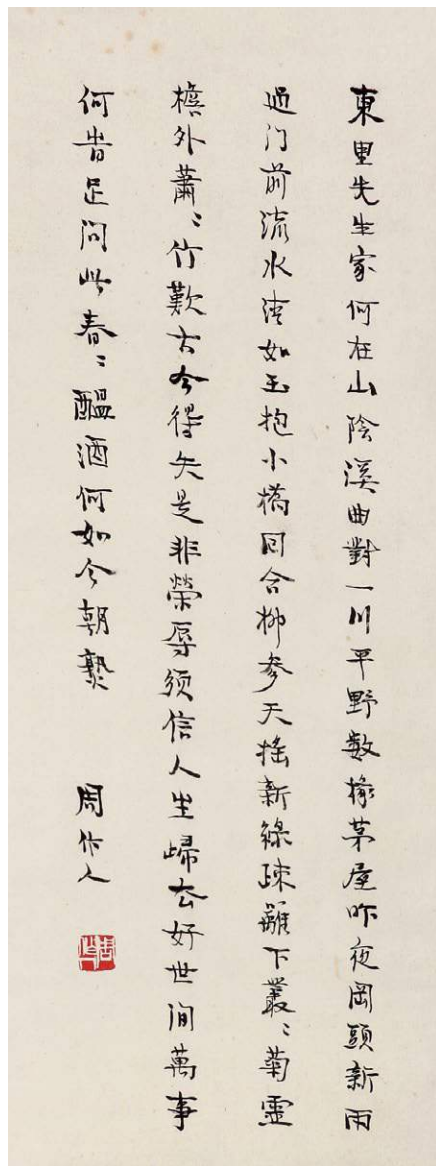 東里先生家何在山陰溪曲對一川平野數椽茅屋昨夜岡頭新雨
過门前流水清如玉抱小橋囘合柳參天搖新綠疎籬下叢〻菊虛
檐外蕭〻竹歎古今得失是非榮辱須信人生歸去好世间萬事
何旹足问此春〻醞酒何如今朝熟
周作人